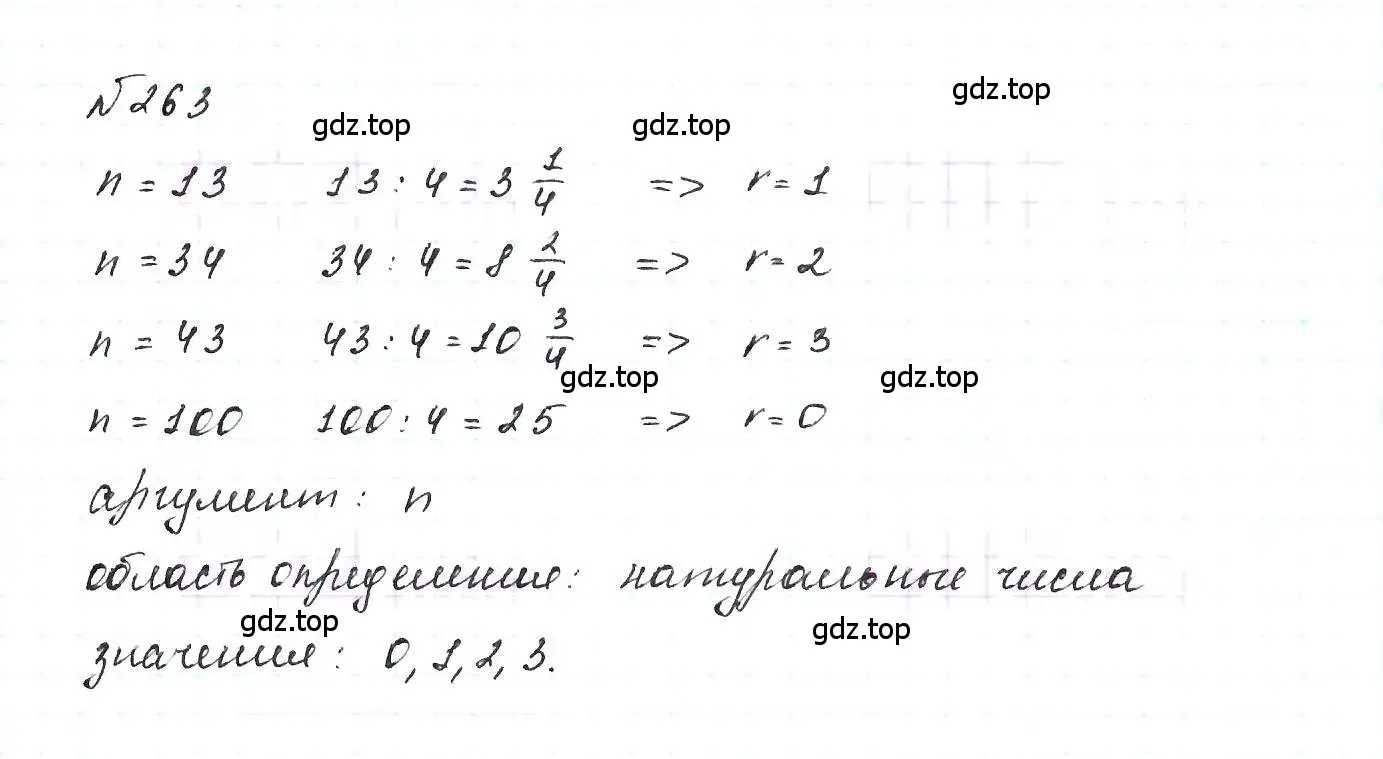 № 263
gdz.top
gdz.top gdz.top
n = 13 13 : 4 = 3 1/4 => r = 1
n = 34 34 : 4 = 8 2/4 => r = 2
n = 43 43 : 4 = 10 3/4 => r = 3
gdz.top gdz.top
n = 100 100 : 4 = 25 => r = 0
аргумент : n
область определения: натуральные числа
gdz.top gdz.top
значения : 0, 1, 2, 3.